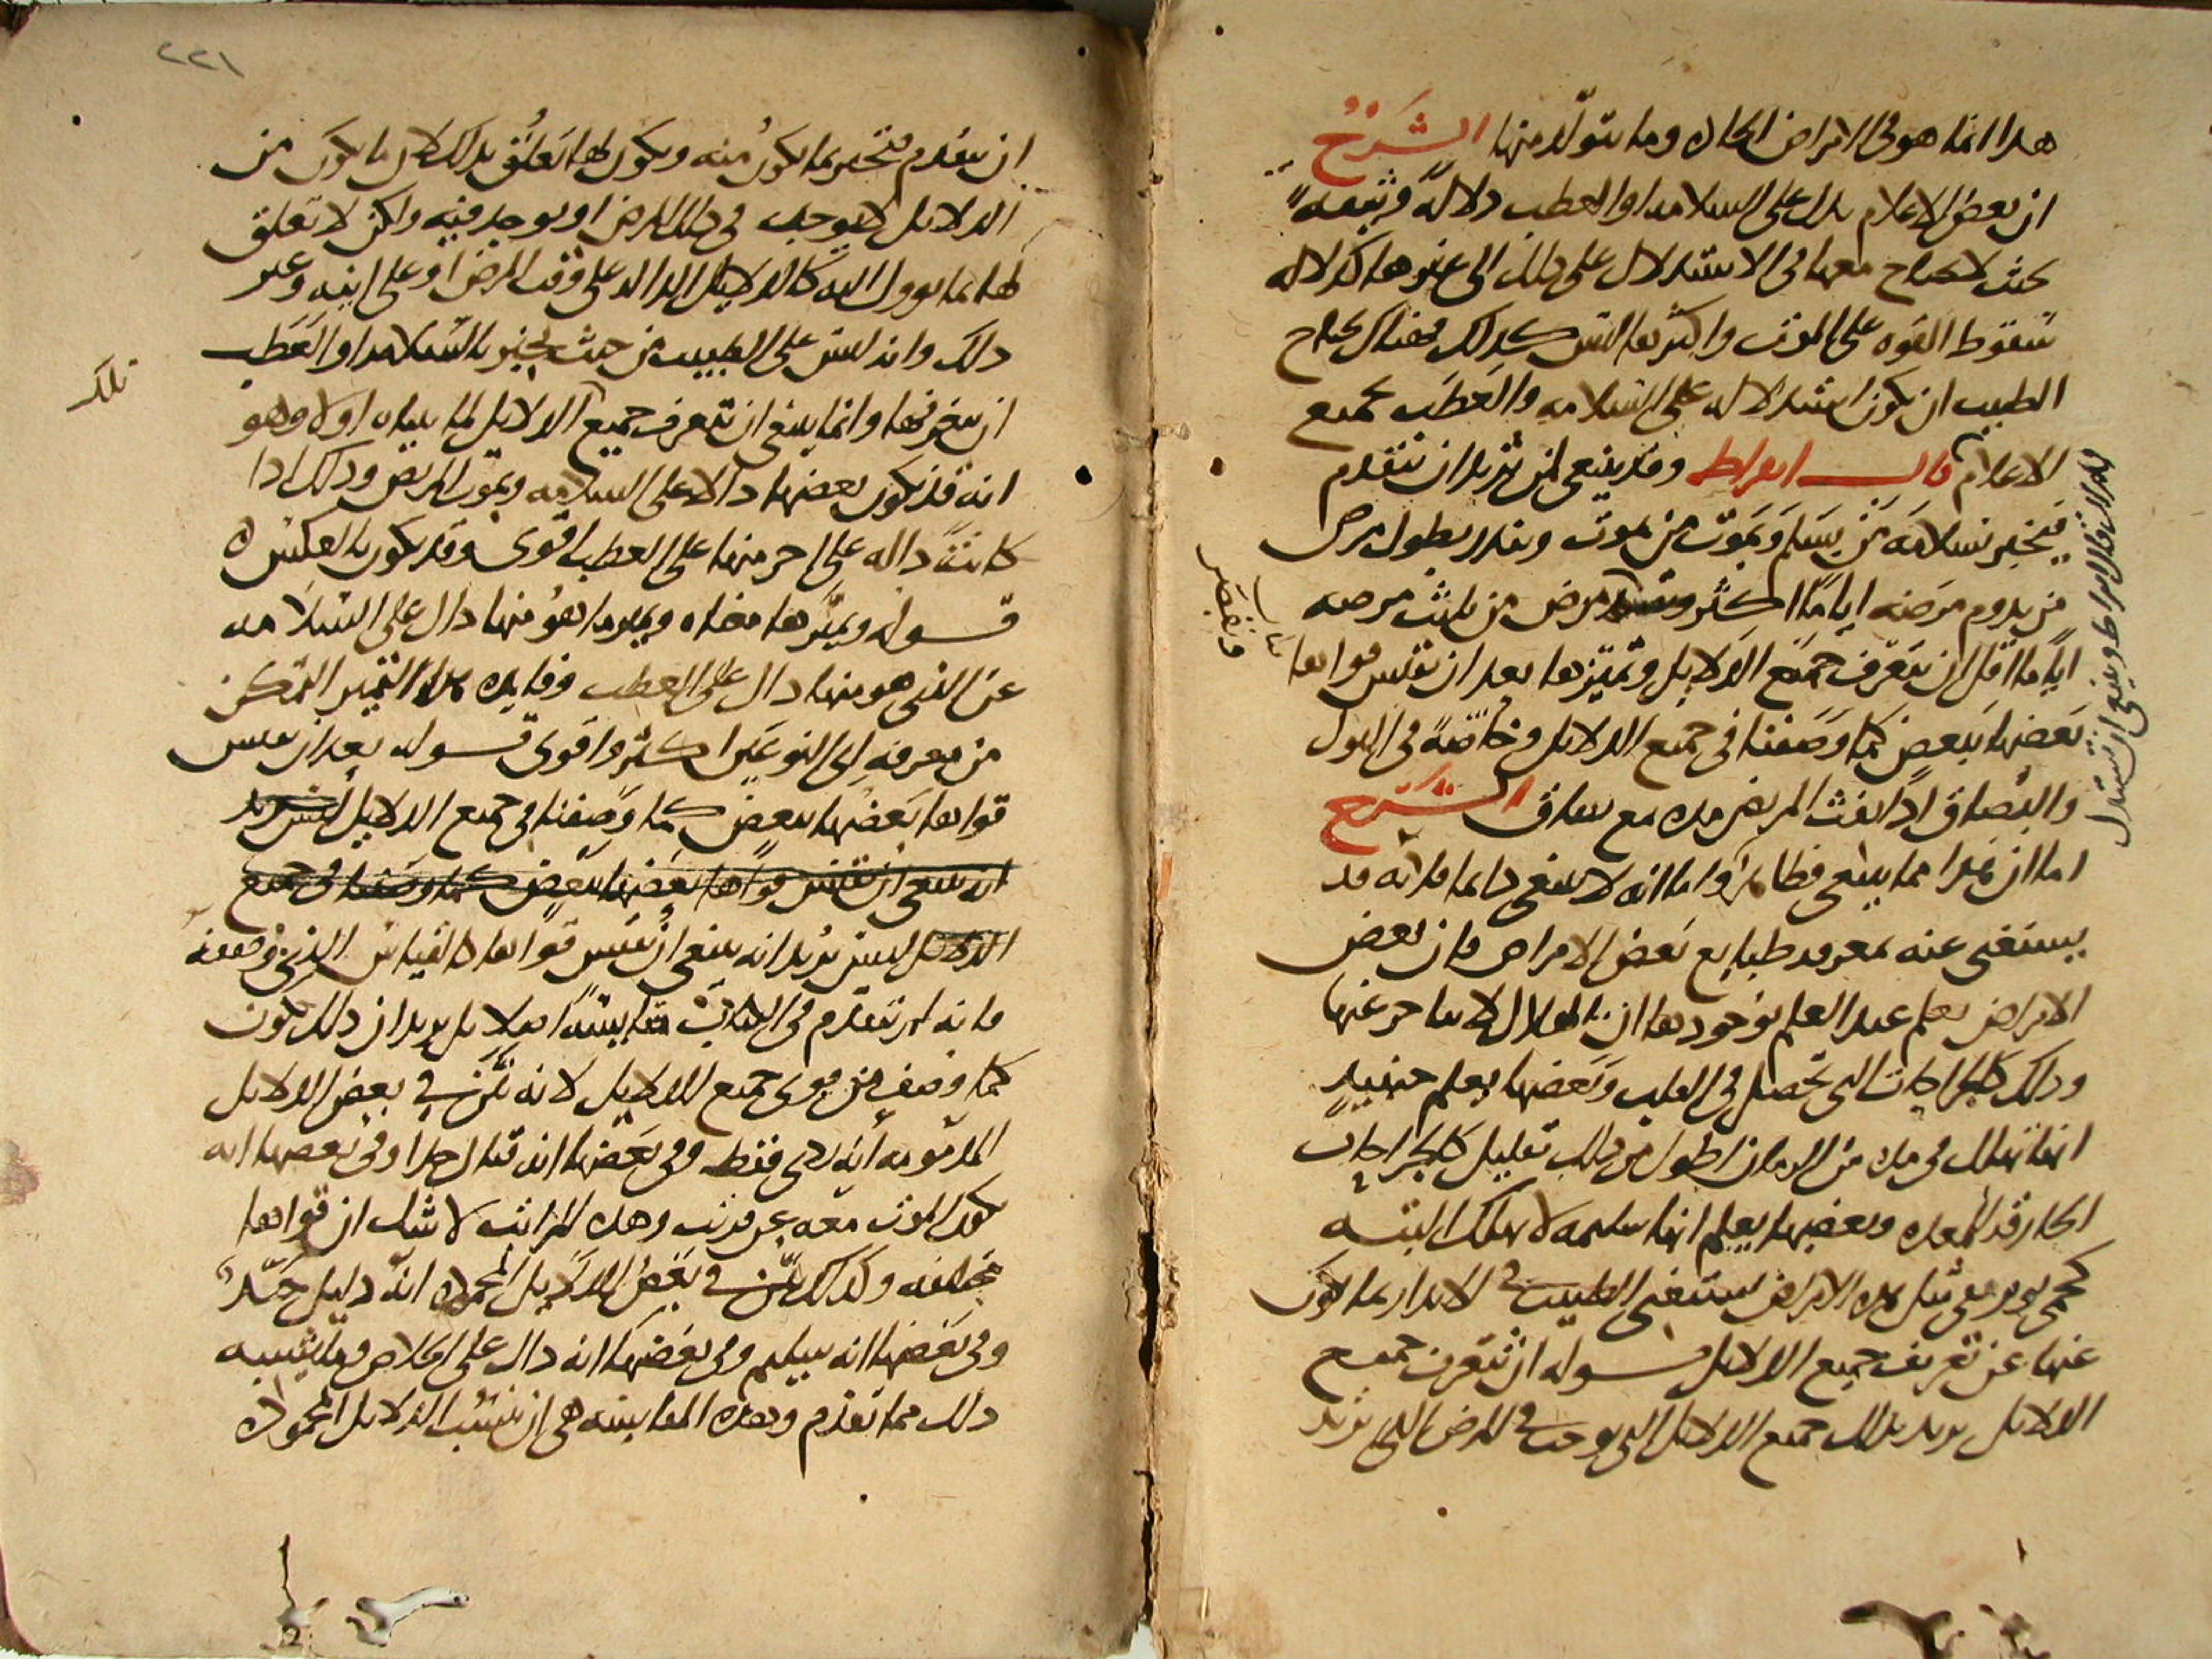 هدا انما هو فى الامراض الحاده وما يتولد منها الشرح
ان بعض الاعلام يدل على السلامه او العطب دلالة وثيقه
بحيث لا يحتاج معها فى الاستدلال على ذلك الى غيرها كدلاله
سقوط القوه على الموت واكثرها ليس كذلك فهناك يحتاج
الطبيب ان يكون استدلاله على السلامه والعطب بجميع
الاعلام قال ابقراط وقد ينبغى لمن يريد ان يتقدم
فيخبر بسلامة من يسلم وبموت من يموت وينذر بطول مرض
من يدوم مرضه اياما اكثر مرض من يلبث مرضه
اياما اقل ان يتعرف جميع الدلايل وتميزها بعد ان يقيس قواها
بعضها ببعض كما وصفنا فى جميع الدلايل وخاصة فى البول
والبصاق اذا نفث المريض مده مع بصاق الشرح
اما ان هذا مما ينبغى فظاهر واما انه لا ينبغى دايما فلانه قد
يستغنى عنه بمعرفه طبايع بعض الامراض فان بعض
الامراض يعلم عند العلم بوجودها ان الهلاك لا يتاخر عنها
وذلك كالجراحات التى تحصل فى القلب وبعضها يعلم حينيد
انها تهلك فى مده من الزمان اطول من ذلك بقليل كالجراحات
الخارقه للمعده وبعضها يعلم انها سليمه لا تهلك البته
كحمى يوم ففى مثل هذه الامراض يستغنى الطبيب فى الاندار بما يكون
عنها عن تعريف جميع الدلايل قوله ان يتعرف جميع
الدلايل يريد بذلك جميع الدلايل التى يوجد فى المرض الذى يريد
وتقصر
٢٢١
ان يتقدم فيخبر بما يكون منه ويكون لها تعلق بذلك لان ما يكون من
الدلايل لا يوجد فى ذلك المرض او يوجد فيه ولكن لا تعلق
لها بما يوول اليه كالدلايل الداله على وقت المرض او على اينه وغير
ذلك فانه ليس على الطبيب من حيث يخبر بالسلامه او العطب
ان يتعرفها وانما ينبغى ان يتعرف جميع الدلايل لما بيناه اولا وهو
تلك
انه قد يكون بعضها دالا على السلامه ويموت المريض وذلك اذا
كانت داله على اخر منها على العطب اقوى وقد يكون بالعكس
قوله وتميزها معناه وتميز ما هو منها دال على السلامه
عن الذى هو منها دال على العطب وفايده هذا التمييز التمكن
من معرفة اى النوعين اكثر واقوى قوله بعد ان يقيس
قواها بعضها ببعض كما وصفنا فى جميع الدلايل ليس يريد
انه ينبغى ان يقيس قواها بعضها ببعض كما وصفنا فى جميع
الدلايل ليس يريد انه ينبغى ان يقيس قواها كالقياس الذى وصفه
فانه لم يتقدم فى الكتاب مقايسة اصلا بل يريد ان ذلك يكون
كما وصف من قوى جميع الدلايل لانه بين فى بعض الدلايل
المذمومه انه ردى فقط وفى بعضها انه قتال جدا وفى بعضها انه
يكون الموت معه عن قريب وهذه المراتب لا شك ان قواها
مختلفه وكذلك بين فى بعض الدلايل المحموده انه دليل جيد
وفى بعضها انه سليم وفى بعضها انه دال على الخلاص وما يشبه
ذلك مما تقدم وهذه المقايسه هى ان ينسب الدلايل المحموده